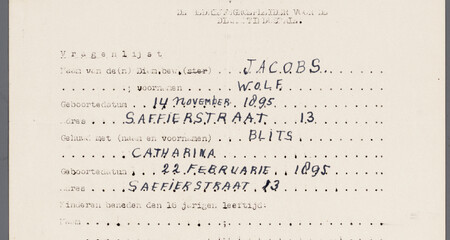 Vragenlijst
Naam van de(n) JACOBS
; voornamen WOLF
Geboortedatum 14 NOVEMBER 1895
Adres SAFFIERSTRAAT 13
Gehuwd met (naam en voornamen) BLITS
CATHARINA
Geboortedatum 22 FEBRUARIE 1895
Adres SAFFIERSTRAAT 13
Kinderen beneden den 16 jarigen leeftijd:
Naam